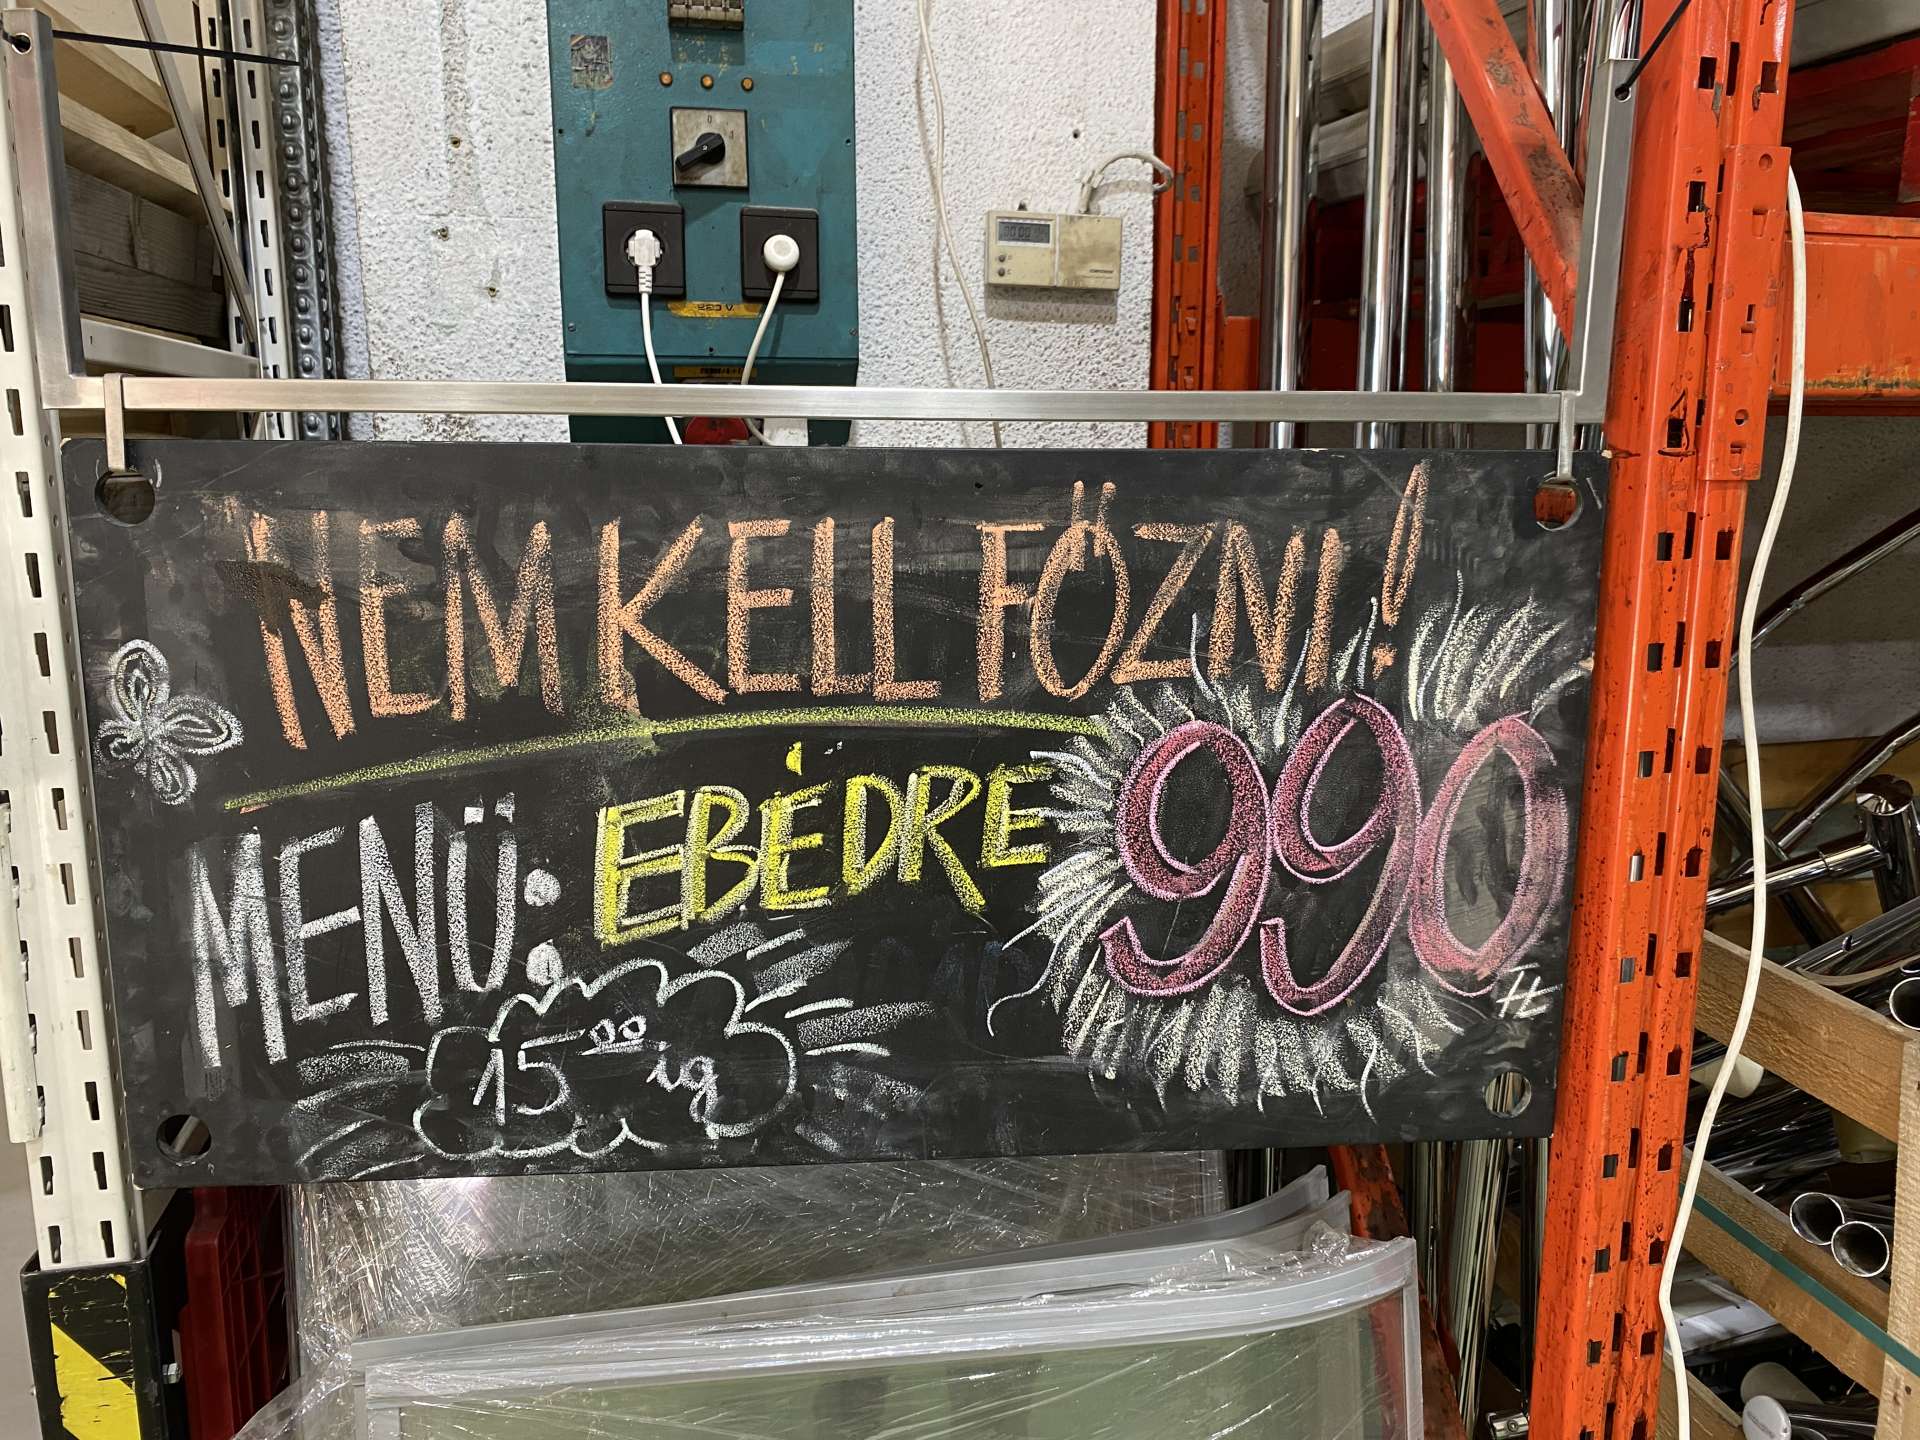 NEM KELL FŐZNI!
MENÜ: EBÉDRE 990
15⁰⁰ ig